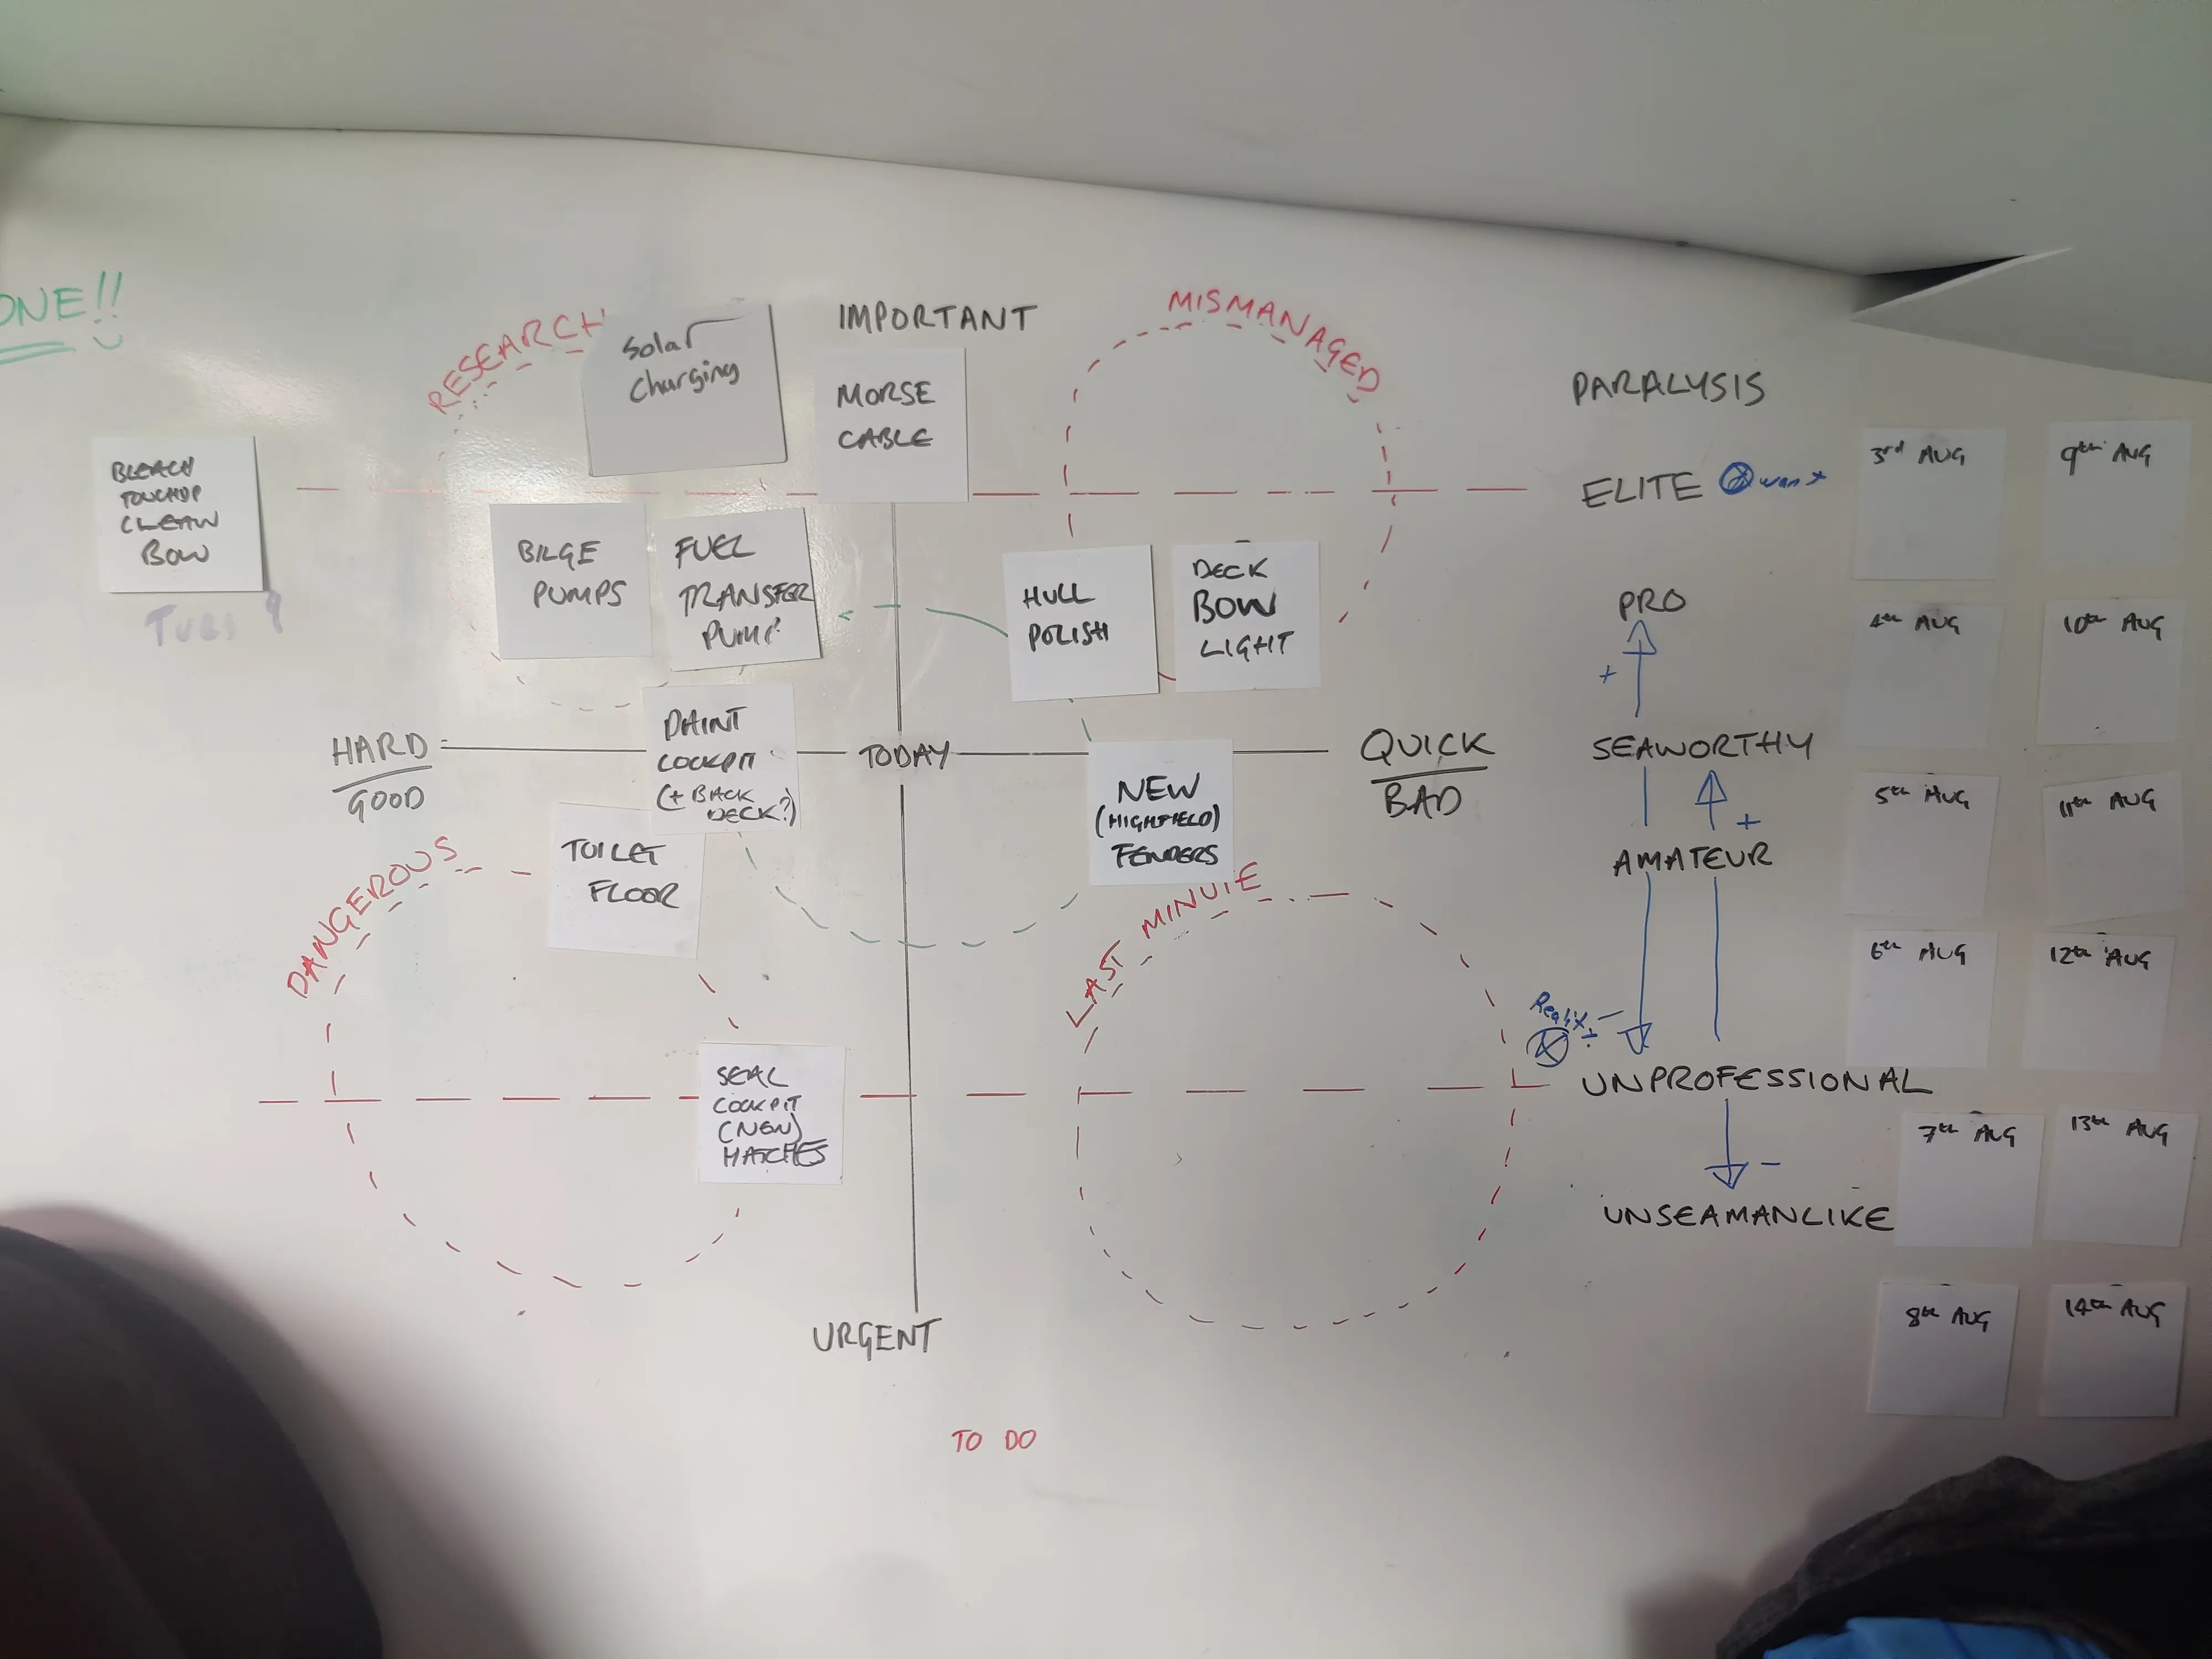 ONE!!
RESEARCH
Solar
Charging
IMPORTANT
MORSE
CABLE
MISMANAGED
BLEACH
TOUCHUP
CLEAN
BOW
TUES
BILGE
PUMPS
FUEL
TRANSFER
PUMP
HULL
POLISH
DECK
BOW
LIGHT
HARD
GOOD
PAINT
COCKPIT
(+ BACK
DECK?)
TODAY
QUICK
BAD
NEW
(HIGHFIELD)
FENDERS
TOILET
FLOOR
DANGEROUS
LAST MINUTE
SEAL
COCKPIT
(NEW)
HATCHES
URGENT
TO DO
PARALYSIS
ELITE want
PRO
+
SEAWORTHY
+
AMATEUR
Reality
UNPROFESSIONAL
-
UNSEAMANLIKE
3rd AUG
4th AUG
5th AUG
6th AUG
7th AUG
8th AUG
9th AUG
10th AUG
11th AUG
12th AUG
13th AUG
14th AUG